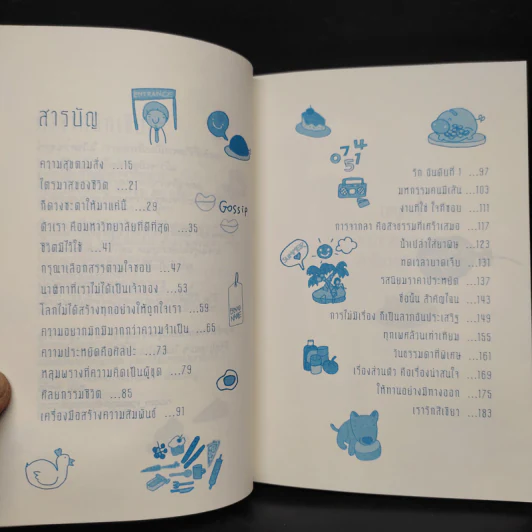 สารบัญ
ความสุขตามสั่ง ...15
ไตรมาสของชีวิต ...21
ก็ดวงชะตาให้มาแค่นี้ ...29
ตัวเรา คือมหาวิทยาลัยที่ดีที่สุด ...35
ชีวิตมีไว้ใช้ ...41
กรุณาเลือกสรรตามใจชอบ ...47
นาฬิกาที่เราไม่ได้เป็นเจ้าของ ...53
โลกไม่ได้สร้างทุกอย่างให้ถูกใจเรา ...59
ความอยากมักมีมากกว่าความจำเป็น ...65
ความประหยัดคือศิลปะ ...73
หลุมพรางที่ความคิดเป็นผู้ขุด ...79
ศัลยกรรมชีวิต ...85
เครื่องมือสร้างความสัมพันธ์ ...91
Gossip
BRAND NAME
074
51
SUMMER
รัก อันดับที่ 1 ...97
มหกรรมคนมีเส้น ...103
งานที่ใช่ ใจที่ชอบ ...111
การจากลา คือสัจธรรมที่เศร้าเสมอ ...117
น้ำเปล่าใส่ยาพิษ ...123
ทดเวลาบาดเจ็บ ...131
รสนิยมราคาประหยัด ...137
ชื่อนั้น สำคัญไฉน ...143
การไม่มีเรื่อง ก็เป็นลาภอันประเสริฐ ...149
ทุกเพศล้วนเท่าเทียม ...155
วันธรรมดาที่พิเศษ ...161
เรื่องส่วนตัว คือเรื่องน่าสนใจ ...169
ให้ทานอย่างมีทางออก ...175
เรารักสีเขียว ...183